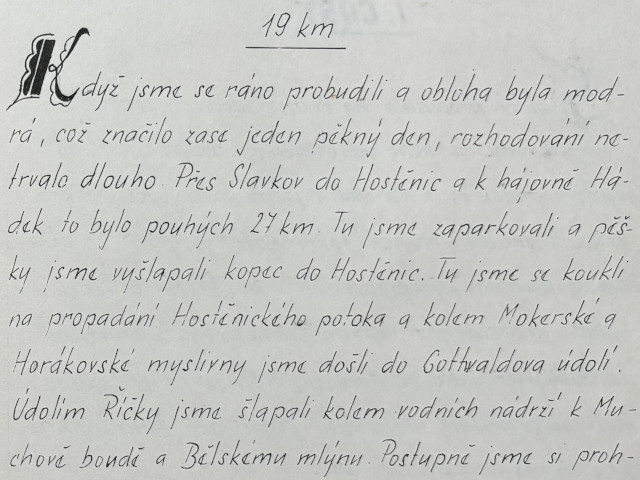 19 km
Když jsme se ráno probudili a obloha byla mod-
rá, což značilo zase jeden pěkný den, rozhodování ne-
trvalo dlouho. Přes Slavkov do Hostěnic a k hájovně Há-
dek to bylo pouhých 27 km. Tu jsme zaparkovali a pěš-
ky jsme vyšlapali kopec do Hostěnic. Tu jsme se koukli
na propadání Hostěnického potoka a kolem Mokerské a
Horákovské myslivny jsme došli do Gottvaldova údolí.
Údolím Říčky jsme šlapali kolem vodních nádrží k Mu-
chově boudě a Bělskému mlýnu. Postupně jsme si proh-